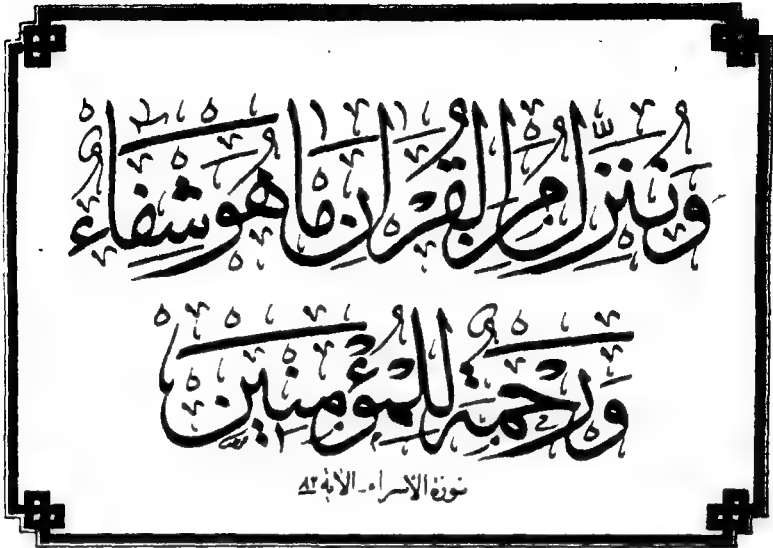 وَنُنَزِّلُ مِنَ الْقُرْآنِ مَا هُوَ شِفَاءٌ
وَرَحْمَةٌ لِلْمُؤْمِنِينَ
سورة الاسراء - الآية ٨٢